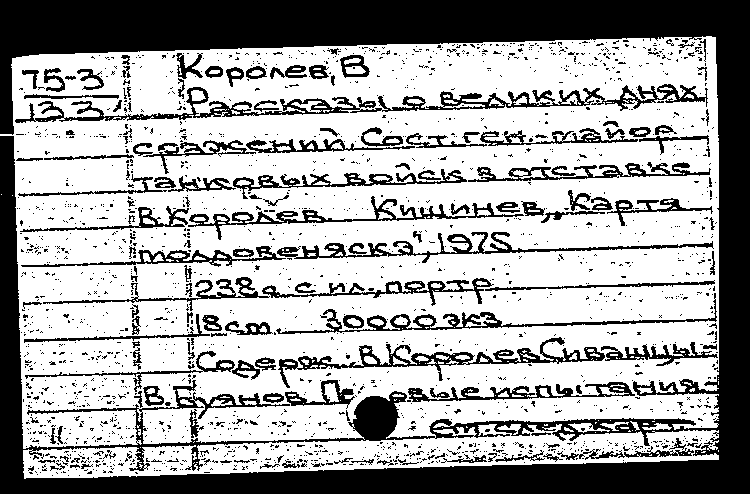 75-3 Королев, В
133 Рассказы о великих днях
сражений. Сост. ген.-майор
танковых войск в отставке
В.Королев. Кишинев, „Картя
молдовеняскэ", 1975.
238 с. с ил., портр.
18 см. 30000 экз.
Содерж.: В.Королев Сивашцы.-
В.Буянов. овые испытания.-
См. след. карт.